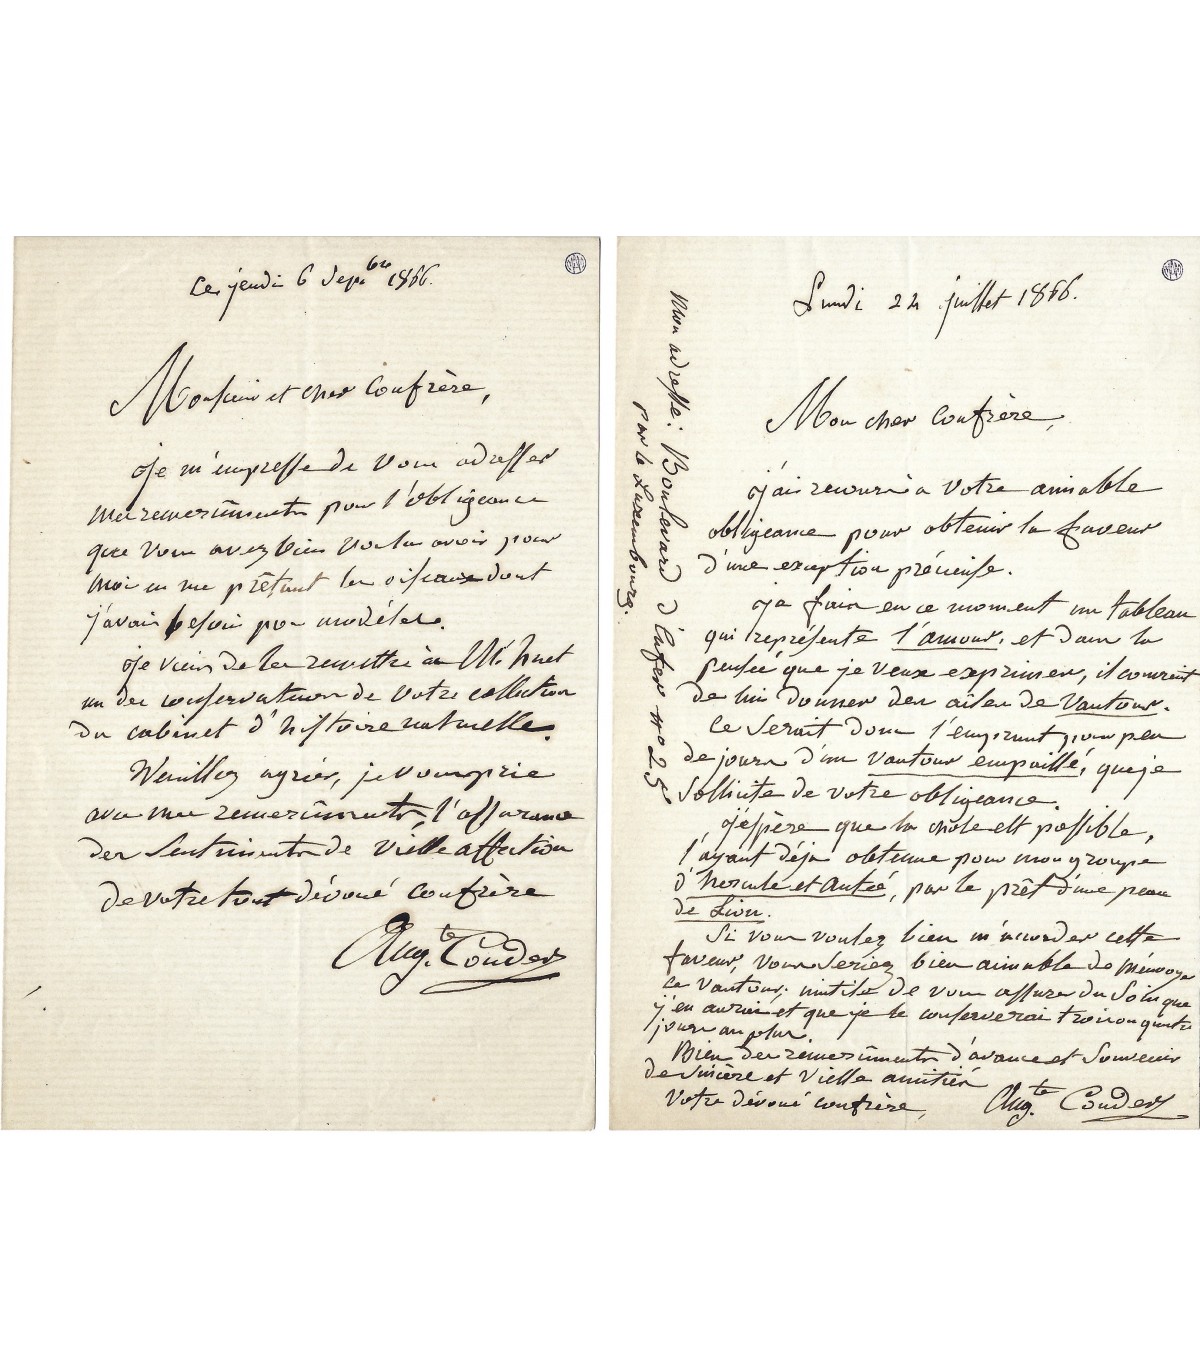 Le, jeudi 6 Sept.bre 1866.
Monsieur et cher Confrère,
Je m'empresse de vous adresser
mes remercîments pour l'obligeance
que vous avez bien voulu avoir pour
moi en me prêtant les oiseaux dont
j'avais besoin pour modèles.
Je viens de les remettre à Mr. huet
un des conservateurs de votre collection
du cabinet d'histoire naturelle.
Veuillez agréer, je vous prie
avec mes remercîments, l'assurance
des sentiments de vielle affection
de votre tout dévoué confrère
Aug.te Couder
Lundi 22 juillet 1866.
Mon cher Confrère,
J'ai recours à votre aimable
obligeance pour obtenir la faveur
d'une exception précieuse.
Je fais en ce moment un tableau
qui représente l'amour, et dans la
pensée que je veux exprimer, il convient
de lui donner des aîles de Vautour.
Ce serait donc l'emprunt pour peu
de jours d'un vautour empaillé, que je
sollicite de votre obligeance.
J'espère que la chôse est possible,
l'ayant déjà obtenue pour mon groupe
d'hercule et Antée, par le prêt d'une peau
de Lion.
Si vous voulez bien m'accorder cette
faveur, vous seriez bien aimable de m'envoyer
ce vautour; inutile de vous assurer du soin que
j'en aurai et que je le conserverai trois ou quatre
jours au plus.
Bien des remercîments d'avance et souvenir
de sincère et vielle amitié
Votre dévoué confrère,
Aug.te Couder
Mon adresse: Boulevard d'Enfer n° 25
par le Luxembourg.